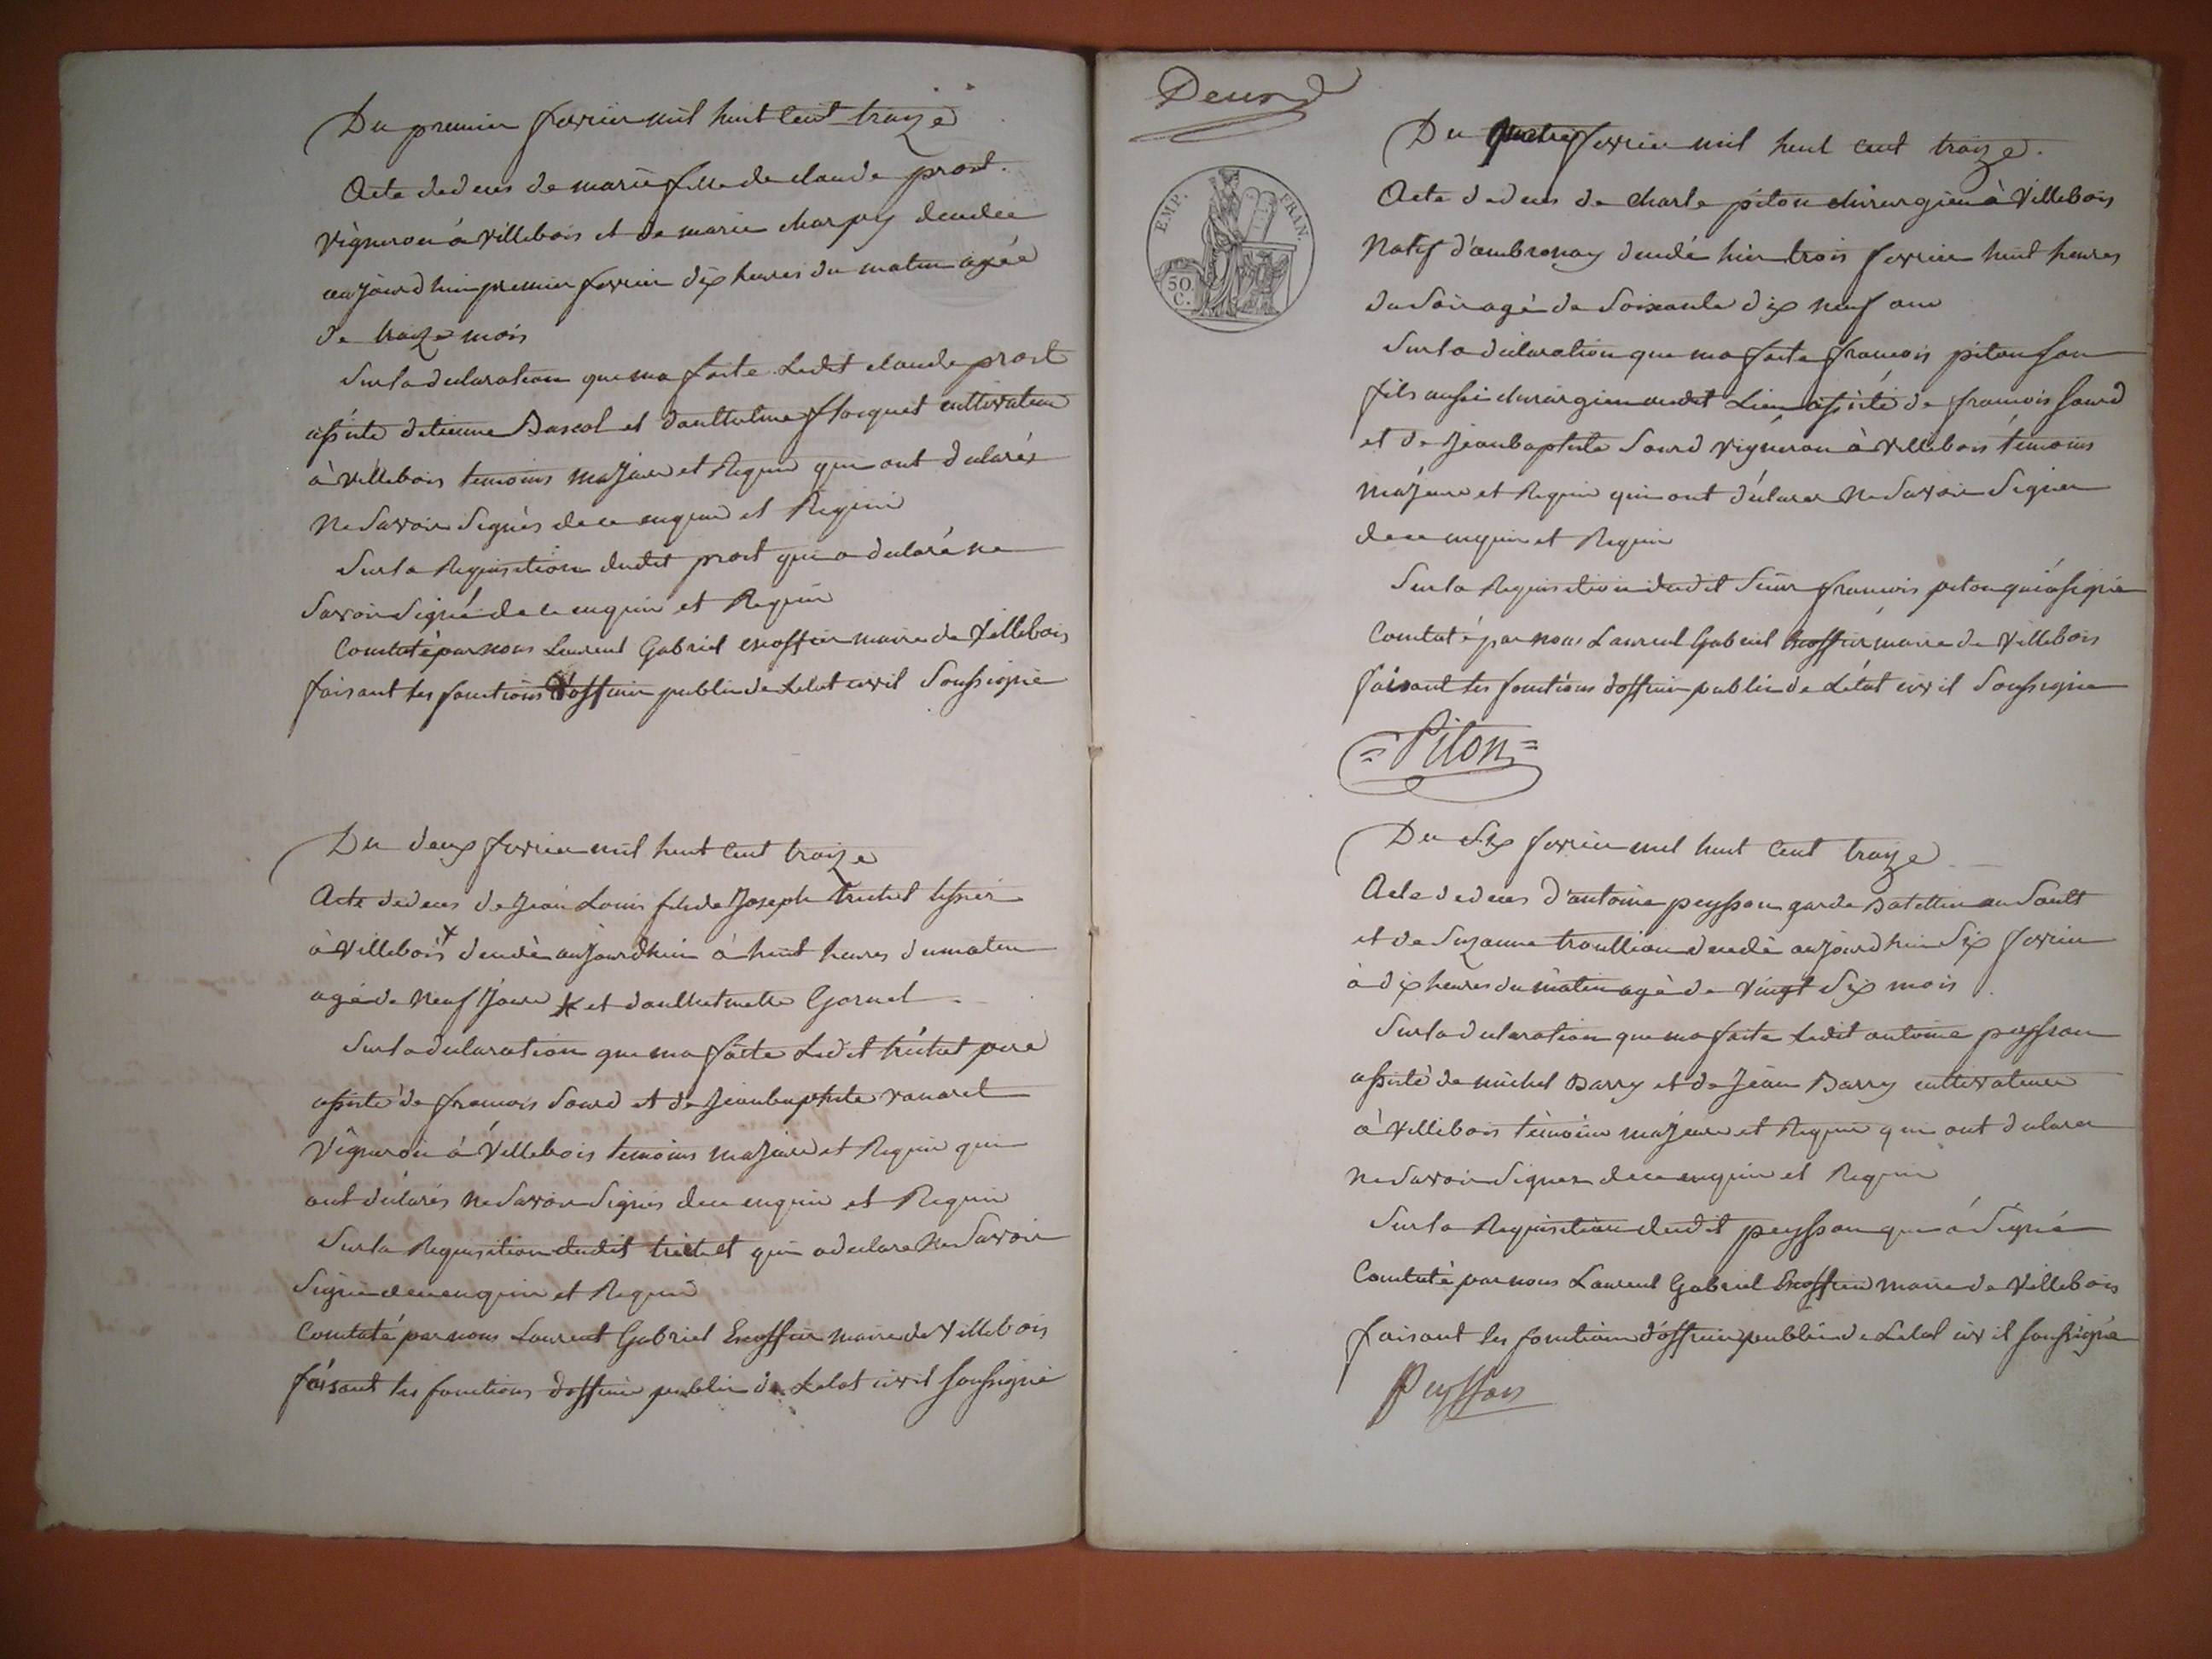 Du premier fevrier mil huit cent traize
Acte dedeces de marie fille de claude prost
vigneron à villebois et de marie charpy decedée
aujourdhui premier fevrier dix heures du matin agée
de traize mois
Sur la declaration que ma faite Ledit claude prost
assisté detienne Bascol et danthelme floquet cultivateur
à villebois temoins majeur et Requis qui ont déclarés
ne Savoir Signés de ce enquis et Requis
Sur la Requisition dudit prost qui a declaré ne
Savoir Signé de ce enquis et Requis
Constaté par nous Laurent Gabriel escoffier maire de Villebois
faisant les fonctions d'officier public de Letat civil Soussigné
Du deux fevrier mil huit cent traize
Acte dedeces de Jean Louis fils de Joseph trichet tissier
à villebois + decedé aujourdhuin à huit heures dumatin
agé de neuf Jours + et d'anthelmette Gornet
Sur la declaration que ma faite Ledit trichet pere
assisté de francois Sourd et de Jeanbaptiste vanaret
vigneron à villebois temoins majeur et Requis qui
ont déclarés ne Savoir Signés de ce enquis et Requis
Sur la Requisition dudit trichet qui a declare ne Savoir
Signé de ce enquis et Requis
Constaté par nous Laurent Gabriel Escoffier maire de Villebois
faisant les fonctions dofficier public de Letat civil soussigné
Deux
EMP. FRAN.
50
C.
Du quatre fevrier mil huit cent traize.
Acte dedeces de charle piton chirurgien à Villebois
Natif d'ambronay decedé hier trois fevrier huit heures
du Soir agé de Soixante dix neuf ans
Sur la declaration que ma faite francois piton son
fils aussi chirurgien audit Lieu assisté de francois sourd
et de Jeanbaptiste Sourd vigneron à villebois temoins
majeur et Requis qui ont déclarer ne Savoir Signer
de ce enquis et Requis
Sur la Requisition dudit Sieur francois piton qui à signé
Constaté par nous Laurent Gabriel Escoffier maire de Villebois
faisant les fonctions dofficier public de Létat civil Soussigné
=Piton=
Du Six fevrier mil huit Cent traize
Acte dedeces d'antoine peysson garde Batellier au Sault
et de Suzanne troullion decedé aujourdhui Six fevrier
à dix heures du matin agé de vingt Six mois
Sur la declaration que ma faite Ledit antoine peysson
assisté de michel Barry et de Jean Barry cultivateur
à villebois témoins majeur et Requis qui ont déclarer
ne Savoir Signer de ce enquis et Requis
Sur la Requisition dudit peysson qui à Signé
Constaté par nous Laurent Gabriel Escoffier maire de Villebois
faisant les fonction d'officier public de Letat civil soussigné
Peysson